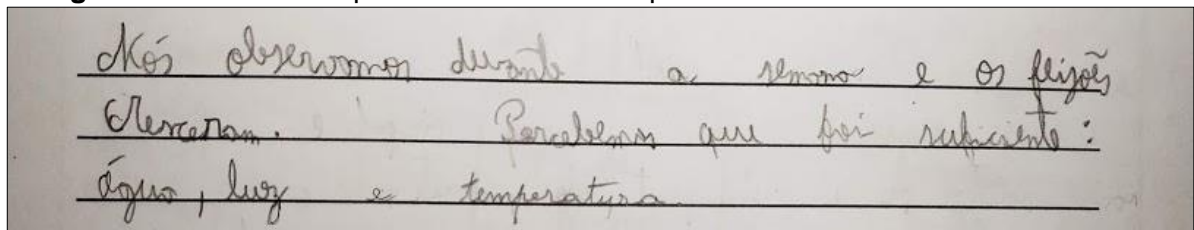 Nós observamos durante a semana e os feijões
cresceram. Percebemos que foi suficiente:
água, luz e temperatura